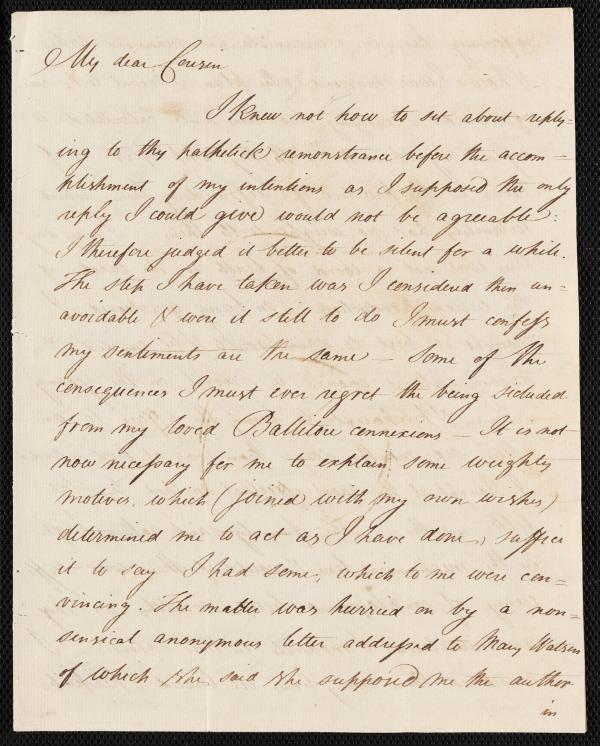 My dear Cousin
I knew not how to set about reply-
ing to thy pathetick remonstrance before the accom-
plishment of my intentions as I supposed the only
reply I could give would not be agreeable:
I therefore judged it better to be silent for a while.
The step I have taken was I considered then un-
avoidable & were it still to do I must confess
my sentiments are the same — some of the
consequences I must ever regret the being secluded
from my loved Ballitore connexions — It is not
now necessary for me to explain some weighty
motives, which (joined with my own wishes)
determined me to act as I have done, suffice
it to say I had some, which to me were con-
vincing. The matter was hurried on by a non-
sensical anonymous letter addressed to Mary Watson
of which she said she supposed me the author
in